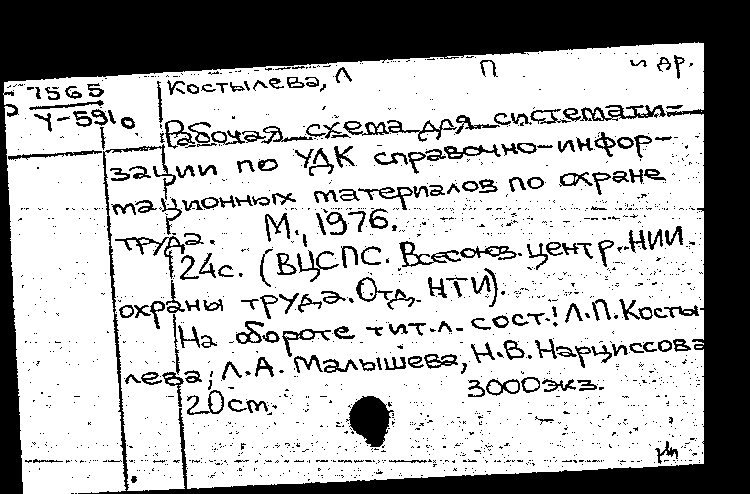 7565 Костылева, Л П и др.
У-591
Рабочая схема для системати-
зации по УДК справочно-инфор-
мационных материалов по охране
труда. М., 1976.
24с. (ВЦСПС. Всесоюз. центр. НИИ
охраны труда. Отд. НТИ).
На обороте тит.л. сост.: Л.П.Косты-
лева, Л.А. Малышева, Н.В. Нарциссова
20cm. 3000экз.